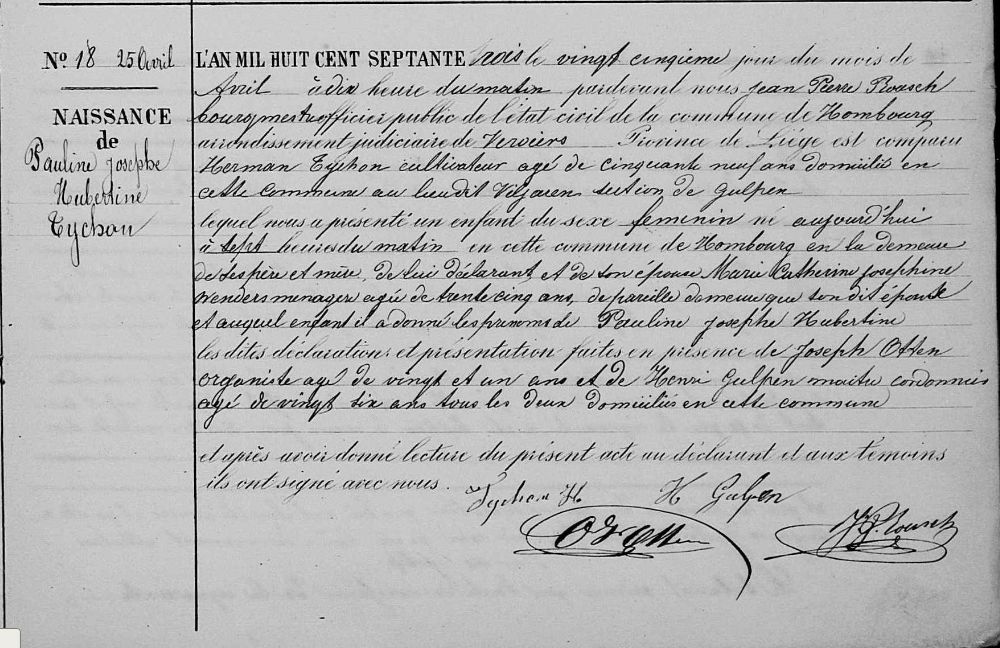 N.º 18 25 Avril
NAISSANCE
de
Pauline Josephe
Hubertine
Tychon
L'AN MIL HUIT CENT SEPTANTE trois le vingt cinqieme jour du mois de
Avril à dix heure du matin pardevant nous Jean Pierre
bourgmestre officier public de l'état civil de la commune de Hombourg
arrondissement judiciaire de Verviers Province de Liége est comparu
Herman Tychon cultivateur agé de cinquante neuf ans domicilié en
cette commune au lieu dit section de Gulpen
lequel nous a présenté un enfant du sexe feminin né aujourd'hui
à sept heures du matin en cette commune de Hombourg en la demeure
de ses père et mère de lui déclarant et de son épouse Marie Catherine Josephine
Wenders menagere agée de trente cinq ans, de pareille demeure que son dit époux
et auquel enfant il a donné les prenoms de Pauline Josephe Hubertine
les dites déclaration et présentation faites en présence de Joseph Otten
organiste agé de vingt et un ans et de Henri Gulpen maitre cordonnier
agé de vingt six ans tous les deux domiciliés en cette commune
et après avoir donné lecture du présent acte au déclarant et aux témoins
ils ont signé avec nous.
Tychon H H Gulpen
Otten